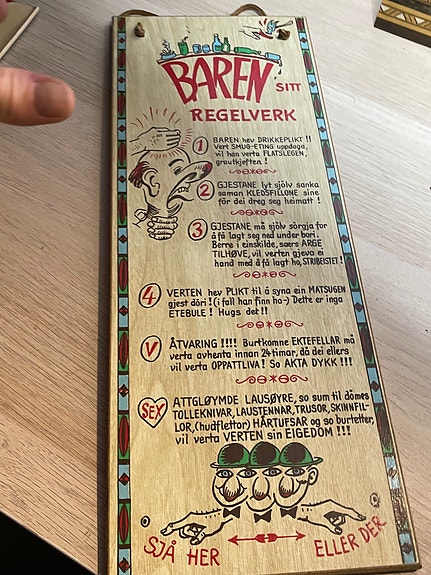 BAREN SITT
REGELVERK
1 BAREN hev DRIKKEPLIKT !!
Vert SMUG-ETING uppdaga,
vil han verta FLATSLEGEN,
grautkjeften !
2 GJESTANE lyt sjölv sanka
saman KLEDSFILLONE sine
för dei dreg seg heimatt !
3 GJESTANE må sjölv sörgja for
å få lagt seg ned under bori.
Berre i einskilde, særs ARGE
TILHØVE, vil verten gjeva ei
hand med å få lagt ho, STRIBEISTET !
4 VERTEN hev PLIKT til å syna ein MATSUGEN
gjest döri ! (i fall han finn ho-) Dette er inga
ETEBULE ! Hugs det !!
V ÅTVARING !!!! Burtkomne EKTEFELLAR må
verta avhenta innan 24 timar, då dei ellers
vil verta OPPATTLIVA ! So AKTA DYKK !!!
SEX ATTGLØYMDE LAUSØYRE, so sum til dömes
TOLLEKNIVAR, LAUSTENNAR, TRUSOR, SKINNFIL-
LOR, (hudflettor) HÅRTUFSAR og so burtetter,
vil verta VERTEN sin EIGEDOM !!!
SJÅ HER
ELLER DER